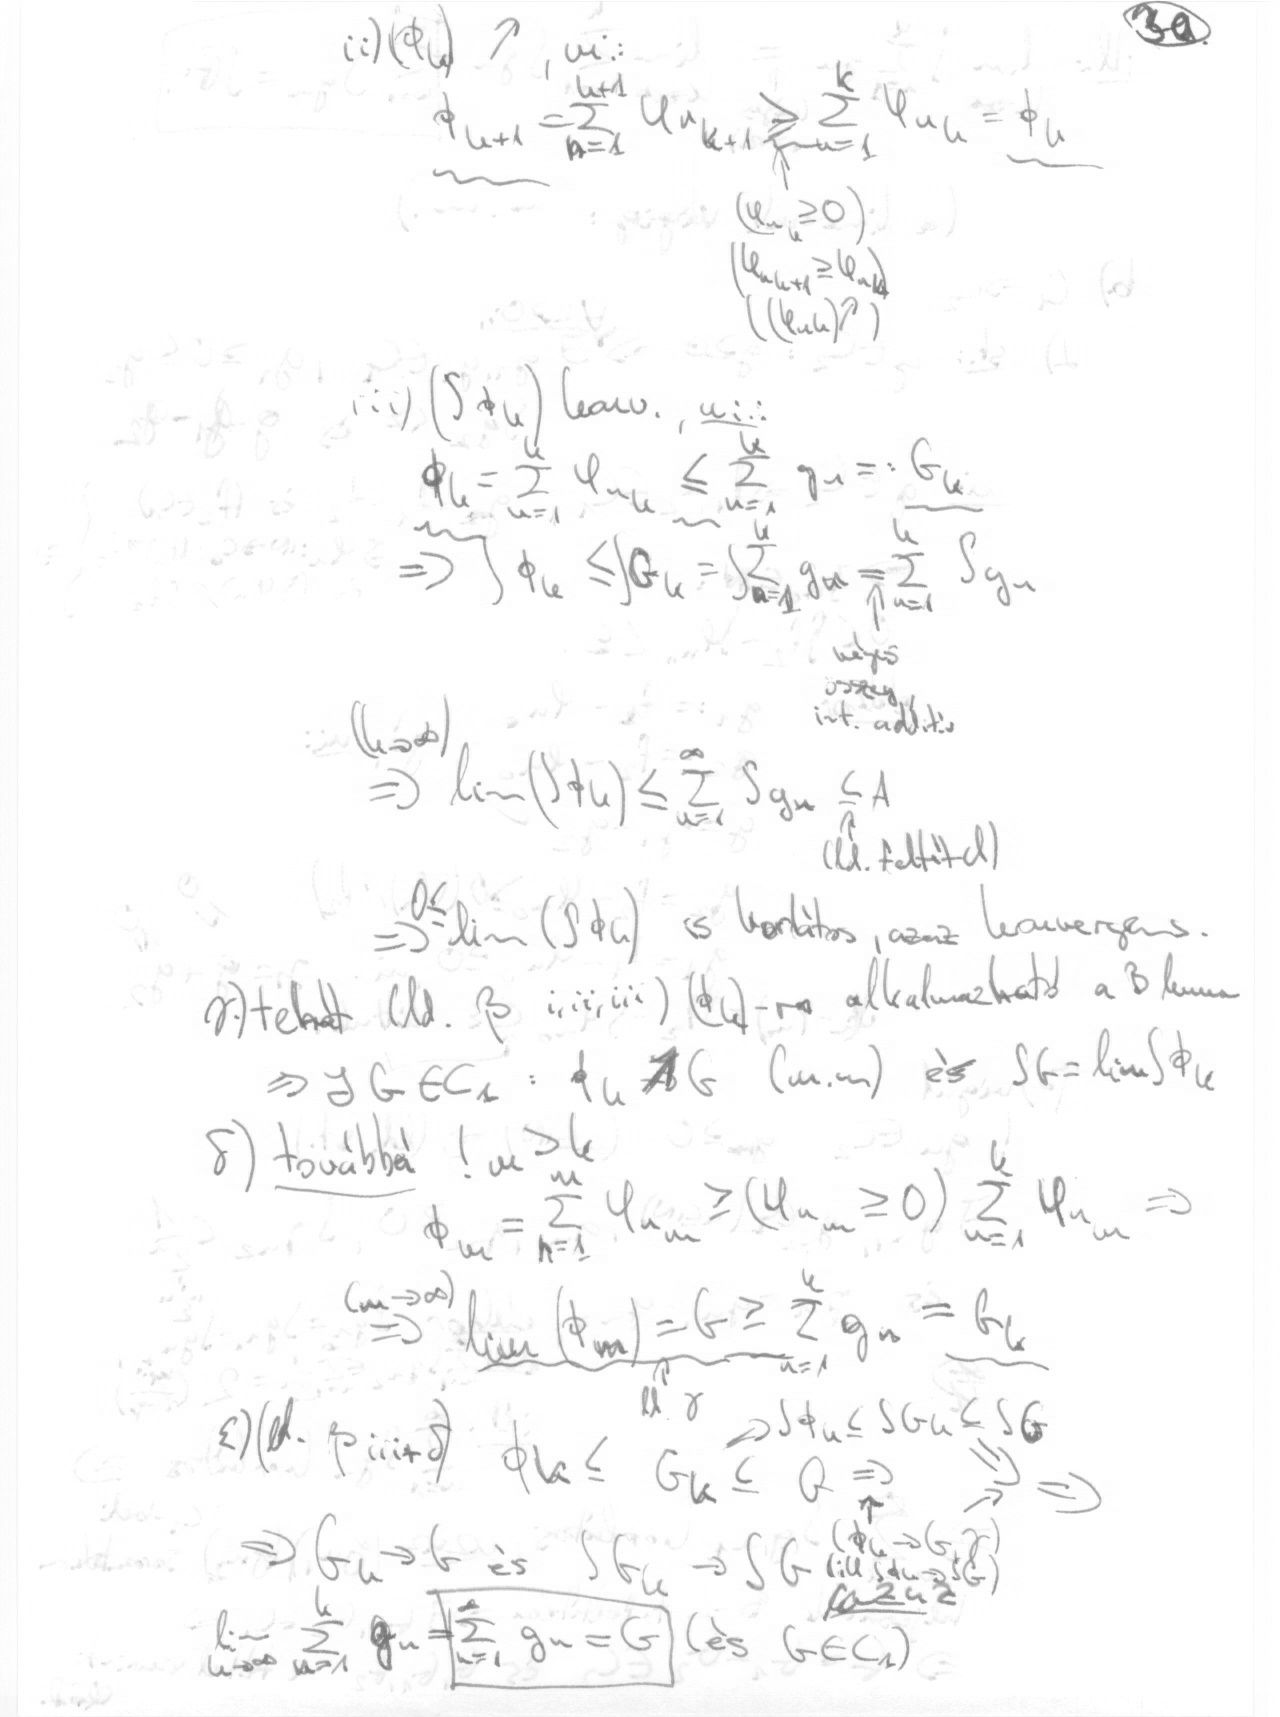 3a.
ii) (ϕ_k) ↗, ui:
ϕ_{k+1} = Σ_{n=1}^{k+1} φ_{n_{k+1}} ≥ Σ_{n=1}^{k} φ_{n_k} = ϕ_k
↑
(φ_{n_k} ≥ 0)
(φ_{n_{k+1}} ≥ φ_{n_k})
((φ_{n_k}) ↗)
iii) (∫ϕ_k) konv., ui:
ϕ_k = Σ_{n=1}^{k} φ_{n_k} ≤ Σ_{n=1}^{k} g_n =: G_k
⇒ ∫ϕ_k ≤ ∫G_k = ∫Σ_{n=1}^{k} g_n = Σ_{n=1}^{k} ∫g_n
↑
véges
összeg,
int. additív
(k→∞)
⇒ lim(∫ϕ_k) ≤ Σ_{n=1}^{∞} ∫g_n ≤ A
↑
(ld. feltétel)
⇒ 0 ≤ lim (∫ϕ_k) és korlátos, azaz konvergens.
γ) tehát (ld. β i, ii, iii) (ϕ_k)-ra alkalmazható a B lemma
⇒ ∃ G ∈ C_1 : ϕ_k ↗ G (m.m) és ∫G = lim∫ϕ_k
δ) továbbá ! m > k
ϕ_m = Σ_{n=1}^{m} φ_{n_m} ≥ (φ_{n_m} ≥ 0) Σ_{n=1}^{k} φ_{n_m} ⇒
(m→∞)
⇒ lim (ϕ_m) = G ≥ Σ_{n=1}^{k} g_n = G_k
↑
ld. γ
⇒ ∫ϕ_k ≤ ∫G_k ≤ ∫G
ε) (ld. β iii + δ) ϕ_k ≤ G_k ≤ G ⇒ ⇒
↑
(ϕ_k → G, γ)
⇒ G_k → G és ∫G_k → ∫G (ill. ∫ϕ_k → ∫G)
azaz
lim_{k→∞} Σ_{n=1}^{k} g_n = Σ_{n=1}^{∞} g_n = G (és G ∈ C_1)